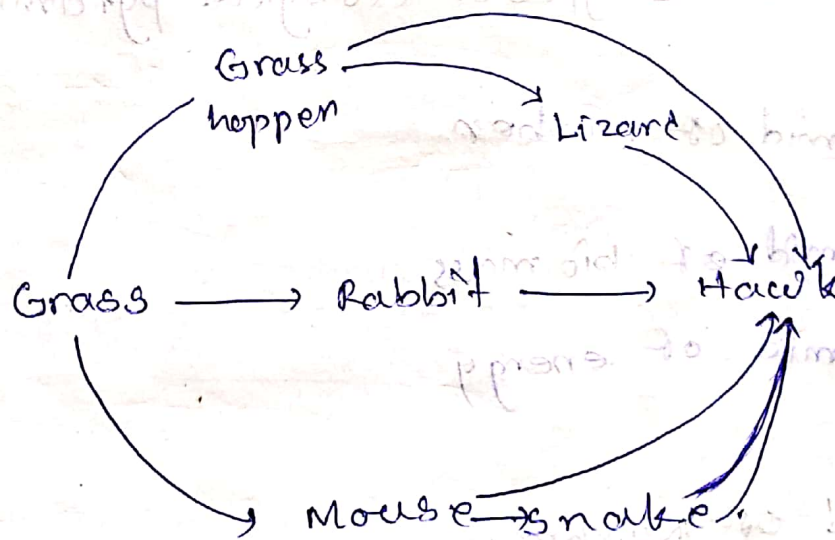 Grass
hopper
Lizard
Grass → Rabbit → Hawk
Mouse → snake